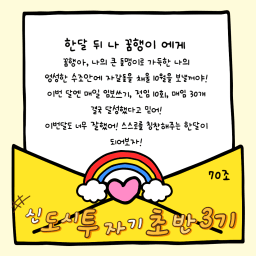 한달 뒤 나 꿈행이 에게
꿈행아, 나의 큰 돌멩이로 가득한 나의
엉성한 수조안에 자갈들을 채울 10월을 보낼게야!
이번 달엔 매일 임보쓰기, 전임 10회, 매임 30개
결국 달성했다고 믿어!
이번달도 너무 잘했어! 스스로를 칭찬해주는 한달이
되어보자!
70조
#신도시투자기초반3기